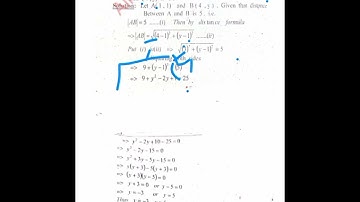 Solution: Let A(1, 1) and B(4, y). Given that distance
Between A and B is 5. i.e.
|AB|=5 ......(i) Then by distance formula
⇒|AB|=√(4-1)²+(y-1)² ......(ii)
Put (i) (ii) ⇒ √(3)²+(y-1)² = 5
sides
⇒ 9+(y-1)²
⇒ 9+y²-2y+ 25
⇒ y²-2y+10-25=0
⇒ y²-2y-15=0
⇒ y²+3y-5y-15=0
⇒ y(y+3)-5(y+3)=0
⇒ (y+3)(y-5)=0
⇒ y+3=0 or y-5=0
⇒ y=-3 or y=5
Thus y=-3